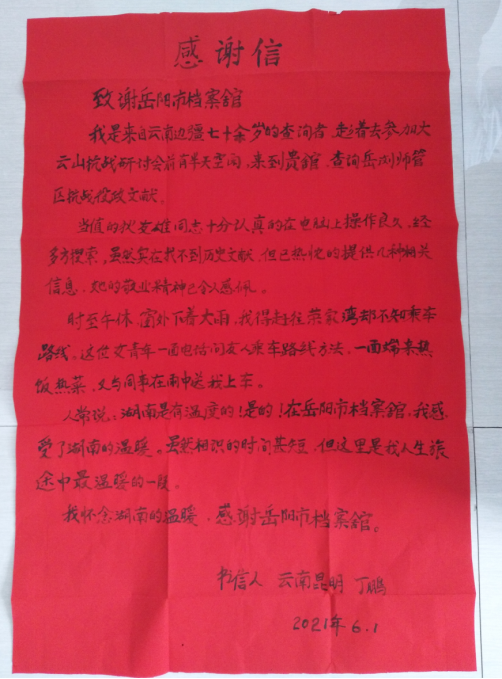 感谢信
致谢岳阳市档案館
我是来自云南边疆七十余岁的查询者,走着去参加大
云山抗战研讨会前有半天空闲,来到貴館,查询岳 师管
区抗战役政文献。
当值的 雄同志十分认真的在电脑上操作良久,经
多方搜索,虽然实在找不到历史文献,但已热忱的提供几种相关
信息,她的敬业精神已令人感佩。
时至午休,窗外下着大雨,我得赶往荣家湾却不知乘车
路线。这位女青年一面电话问友人乘车路线方法,一面端来热
饭热菜,又与同事在雨中送我上车。
人常说:湖南是有温度的!是的!在岳阳市档案館,我感
受了湖南的温暖。虽然相识的时间甚短,但这里是我人生旅
途中最温暖的一段。
我怀念湖南的温暖,感谢岳阳市档案館。
书信人 云南昆明 丁鹏
2021年6.1